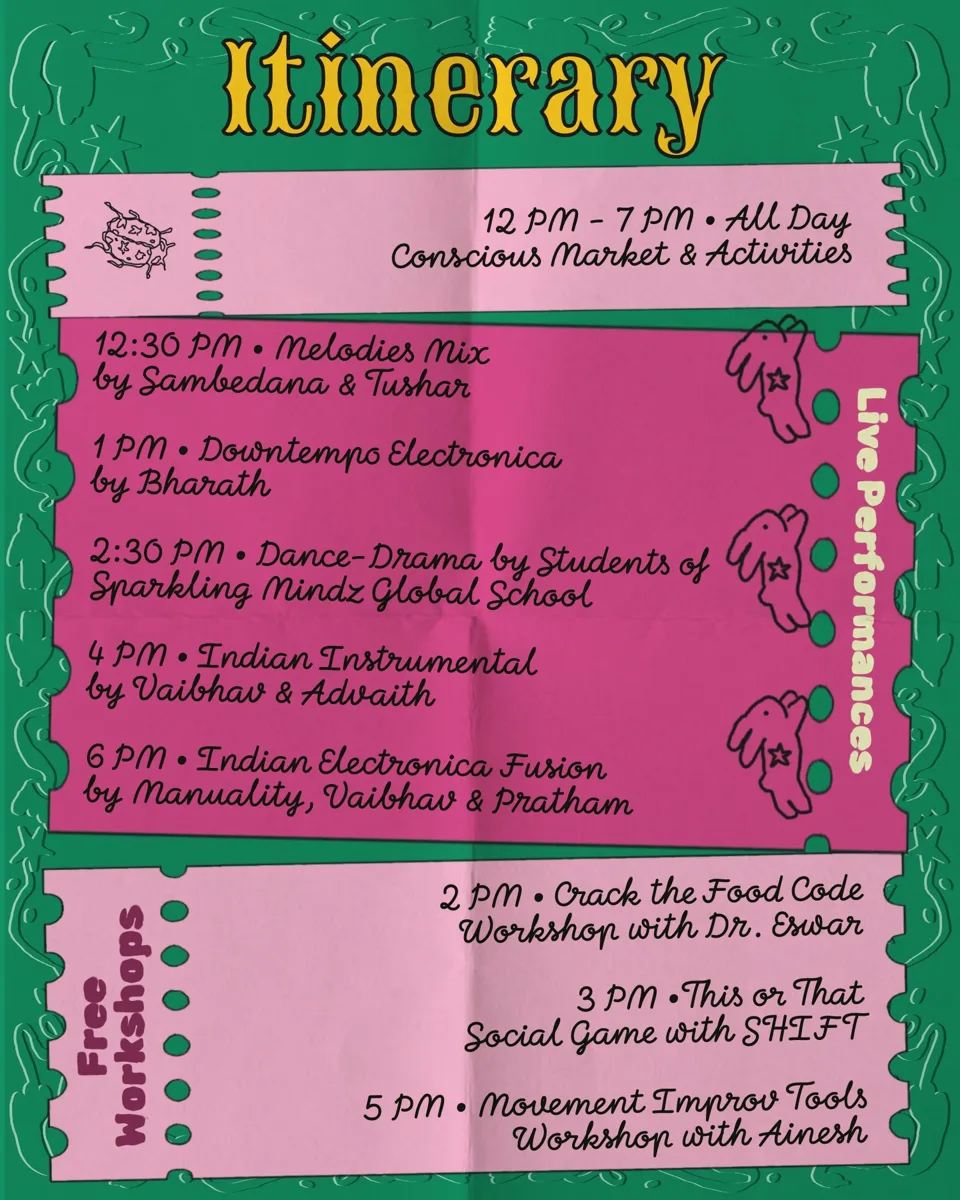 Itinerary
12 PM - 7 PM • All Day
Conscious Market & Activities
12:30 PM • Melodies Mix
by Sambedana & Tushar
1 PM • Downtempo Electronica
by Bharath
2:30 PM • Dance-Drama by Students of
Sparkling Mindz Global School
4 PM • Indian Instrumental
by Vaibhav & Advaith
6 PM • Indian Electronica Fusion
by Manuality, Vaibhav & Pratham
Live Performances
Free
Workshops
2 PM • Crack the Food Code
Workshop with Dr. Eswar
3 PM •This or That
Social Game with SHIFT
5 PM • Movement Improv Tools
Workshop with Ainesh